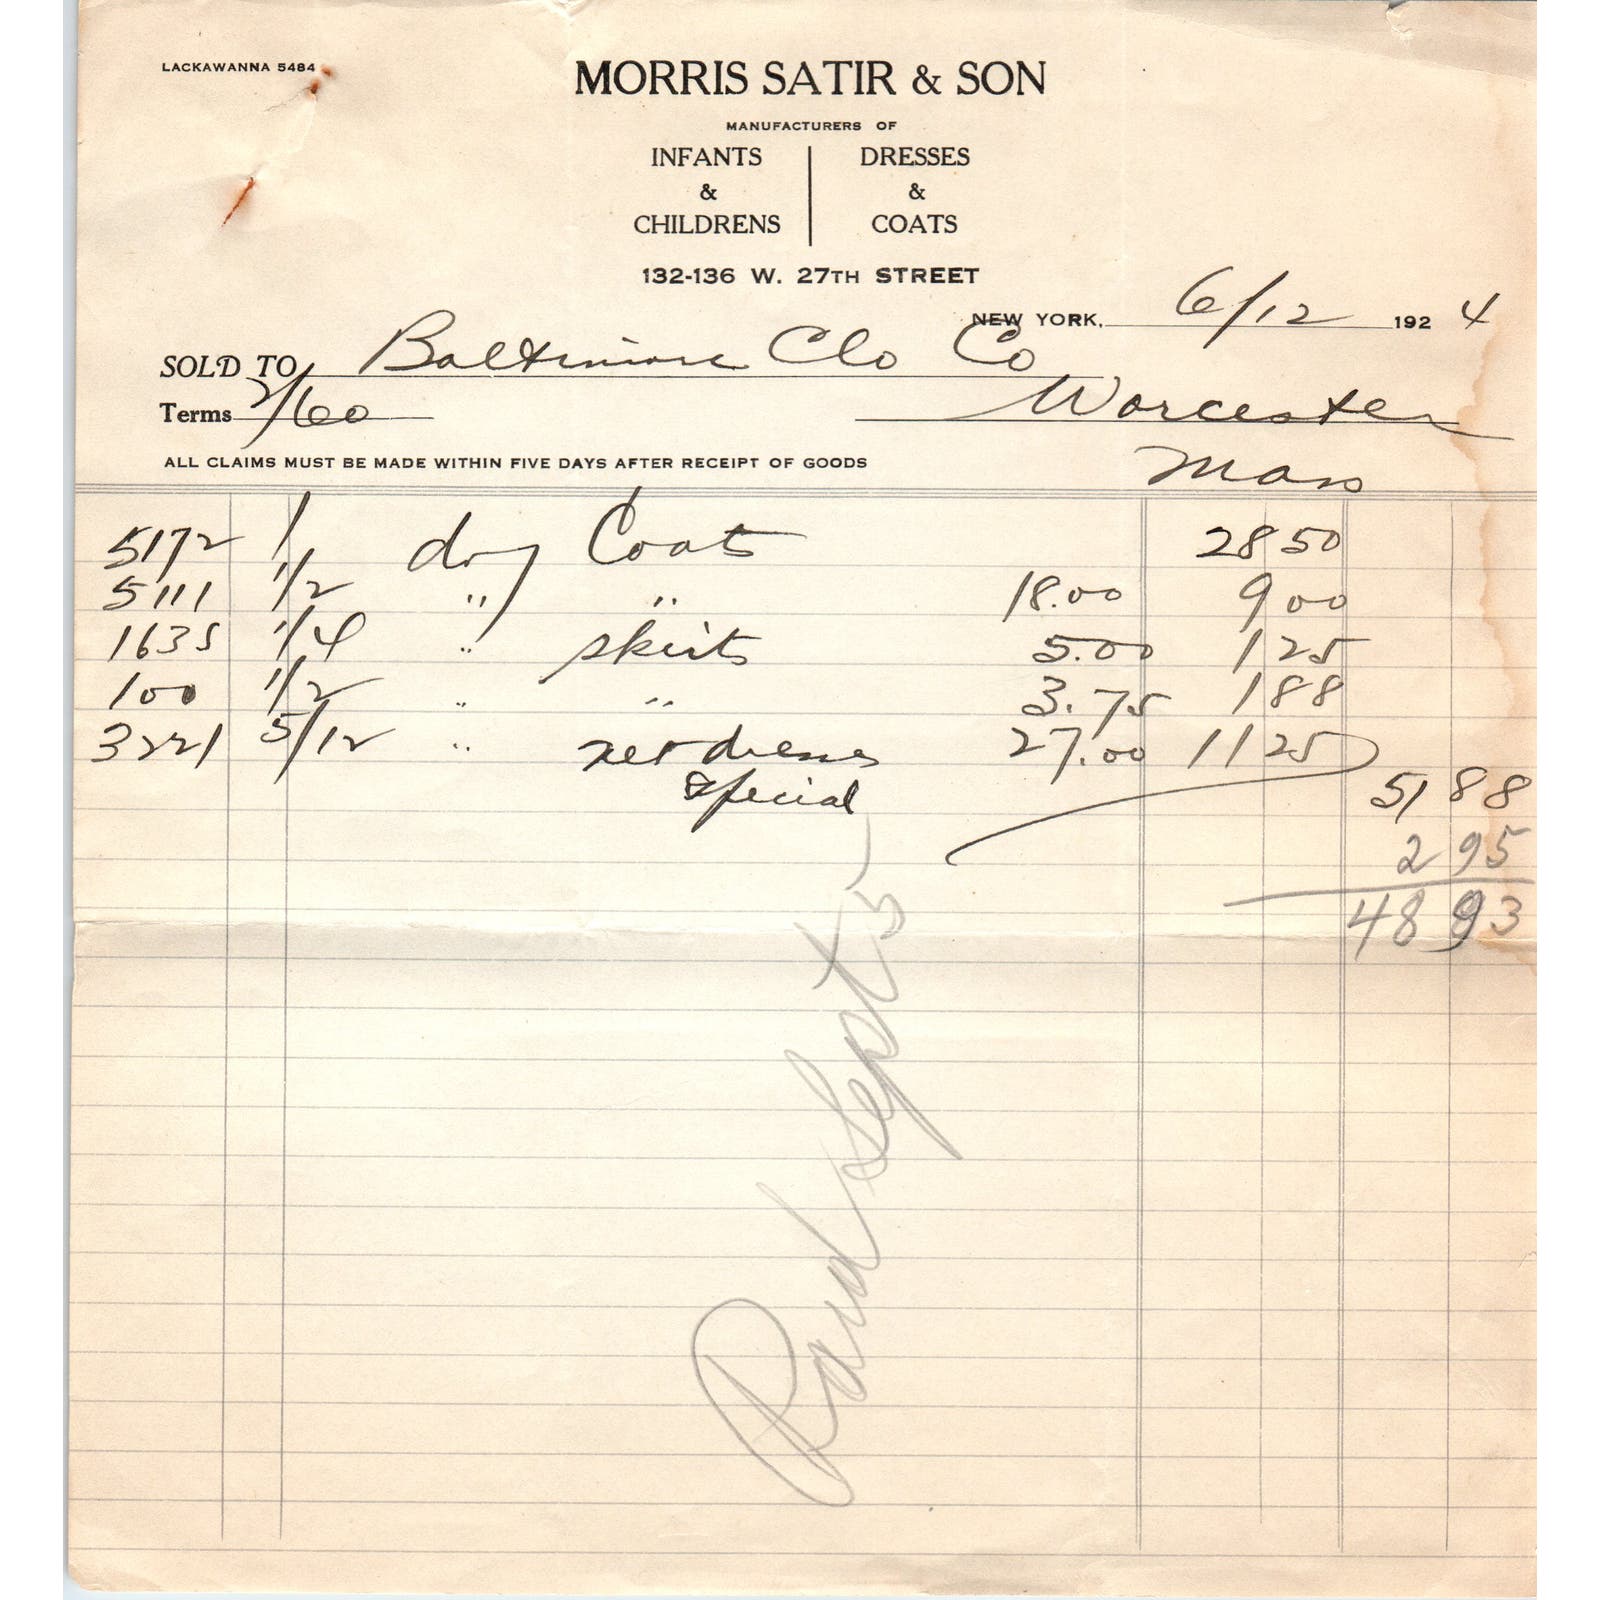 LACKAWANNA 5484
MORRIS SATIR & SON
MANUFACTURERS OF
INFANTS & CHILDRENS | DRESSES & COATS
132-136 W. 27TH STREET
NEW YORK, 6/12 1924
SOLD TO Baltimore Clo Co
Terms 2/60 Worcester
Mass
ALL CLAIMS MUST BE MADE WITHIN FIVE DAYS AFTER RECEIPT OF GOODS
5172 1 doz Coats 28 50
5111 1/2 " " 18.00 9 00
1635 1/4 " skirts 5.00 1 25
100 1/2 " " 3.75 1 88
3221 5/12 " net dresses 27.00 11 25
special 51 88
2 95
48 93
Paid Sept 5